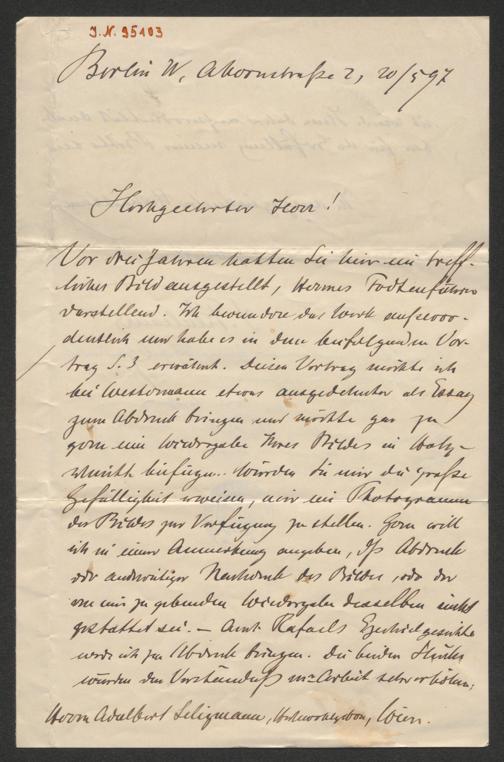 J.N. 95103
Berlin W, Ahornstraße 2, 20/5 97
Hochgeehrter Herr!
Vor drei Jahren hatten Sie hier ein treff-
liches Bild ausgestellt, Hermes Todtenführer
darstellend. Ich bewundere das Werk außeror-
dentlich und habe es in dem beifolgenden Vor-
trag S. 3 erwähnt. Diesen Vortrag möchte ich
bei Westermann etwas ausgedehnter als Essay
zum Abdruck bringen und möchte gar zu
gern eine Wiedergabe Ihres Bildes in Holz-
schnitt beifügen. Würden Sie mir die große
Gefälligkeit erweisen, mir ein Photogramm
des Bildes zur Verfügung zu stellen. Gern will
ich in einer Anmerkung angeben, daß Abdruck
oder anderweitiger Nachdruck des Bildes, oder der
von mir zu gebenden Wiedergabe desselben nicht
gestattet sei. – Auch Rafaels Ezechielgesicht
werde ich zum Abdruck bringen. Die beiden Stücke
würden das Verständniß m. Arbeit sehr erhöhen;
Herrn Adalbert Seligmann, Wien.